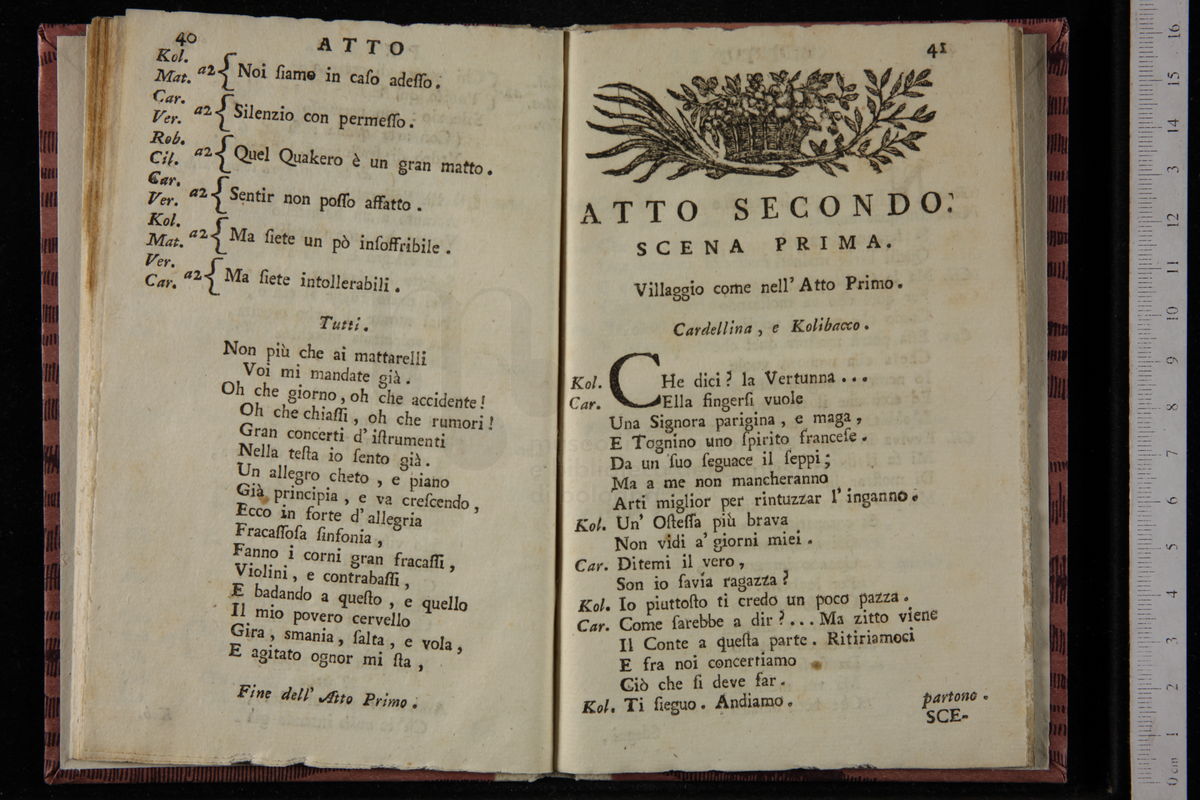 40
ATTO
Kol.
Mat. a2 { Noi ſiamo in caſo adeſſo.
Car.
Ver. a2 { Silenzio con permeſſo.
Rob.
Cil. a2 { Quel Quakero è un gran matto.
Car.
Ver. a2 { Sentir non poſſo affatto.
Kol.
Mat. a2 { Ma ſiete un pò inſoffribile.
Ver.
Car. a2 { Ma ſiete intollerabili.
Tutti.
Non più che ai mattarelli
Voi mi mandate già.
Oh che giorno, oh che accidente!
Oh che chiaſſi, oh che rumori!
Gran concerti d'iſtrumenti
Nella teſta io ſento già.
Un allegro cheto, e piano
Già principia, e va creſcendo,
Ecco in forte d'allegria
Fracaſſoſa ſinfonia,
Fanno i corni gran fracaſſi,
Violini, e contrabaſſi,
E badando a queſto, e quello
Il mio povero cervello
Gira, smania, ſalta, e vola,
E agitato ognor mi ſta,
Fine dell' Atto Primo.
41
ATTO SECONDO.
SCENA PRIMA.
Villaggio come nell' Atto Primo.
Cardellina, e Kolibacco.
Kol. CHe dici? la Vertunna...
Car. Ella fingerſi vuole
Una Signora parigina, e maga,
E Tognino uno ſpirito franceſe.
Da un ſuo ſeguace il ſeppi;
Ma a me non mancheranno
Arti miglior per rintuzzar l'inganno.
Kol. Un' Oſteſſa più brava
Non vidi a' giorni miei.
Car. Ditemi il vero,
Son io ſavia ragazza?
Kol. Io piuttoſto ti credo un poco pazza.
Car. Come ſarebbe a dir?... Ma zitto viene
Il Conte a queſta parte. Ritiriamoci
E fra noi concertiamo
Ciò che ſi deve far.
Kol. Ti ſieguo. Andiamo. partono.
SCE-
16
15
14
3
12
11
10
9
8
7
6
5
4
3
2
1
0 cm